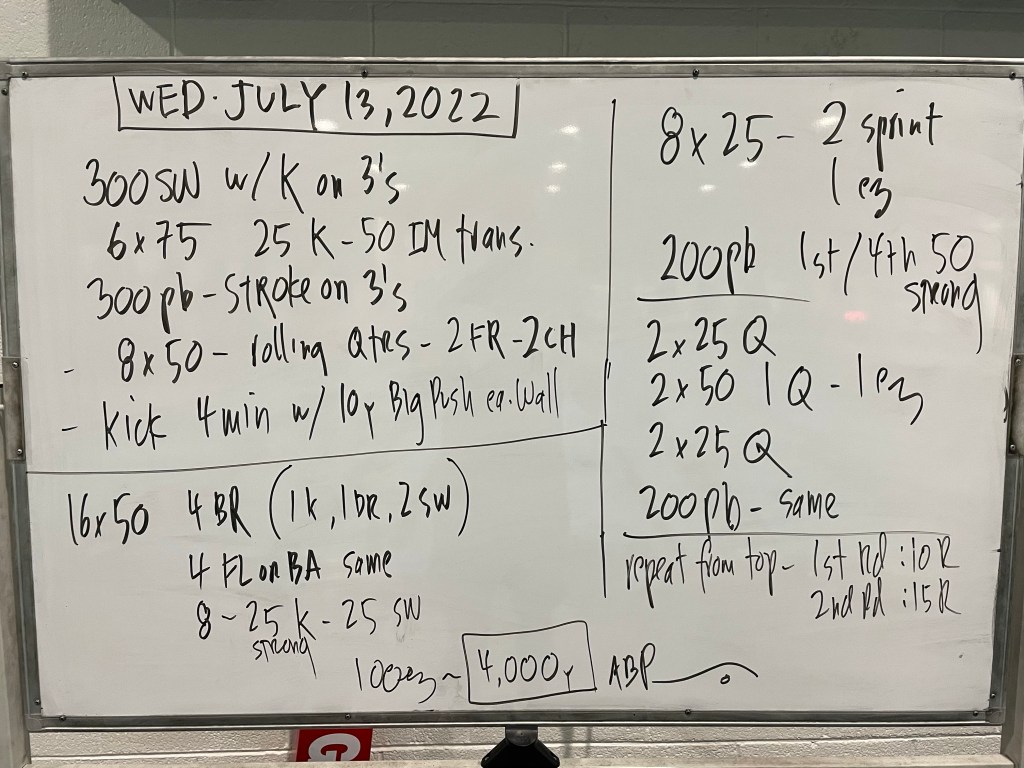 WED. JULY 13, 2022
300 SW w/ K on 3's
6 x 75 25 K - 50 IM trans.
300 pb - STROKE on 3's
- 8 x 50 - rolling Qtrs - 2 FR - 2 CH
- Kick 4 min w/ 10y Big Push ea. Wall
16 x 50 4 BR (1 K, 1 DR, 2 SW)
4 FL or BA same
8 - 25 K - 25 SW
strong
8 x 25 - 2 sprint
1 ez
200 pb 1st / 4th 50
strong
2 x 25 Q
2 x 50 1 Q - 1 ez
2 x 25 Q
200 pb - same
repeat from top - 1st Rd :10 R
2nd Rd :15 R
100 ez ~ 4,000y ABP